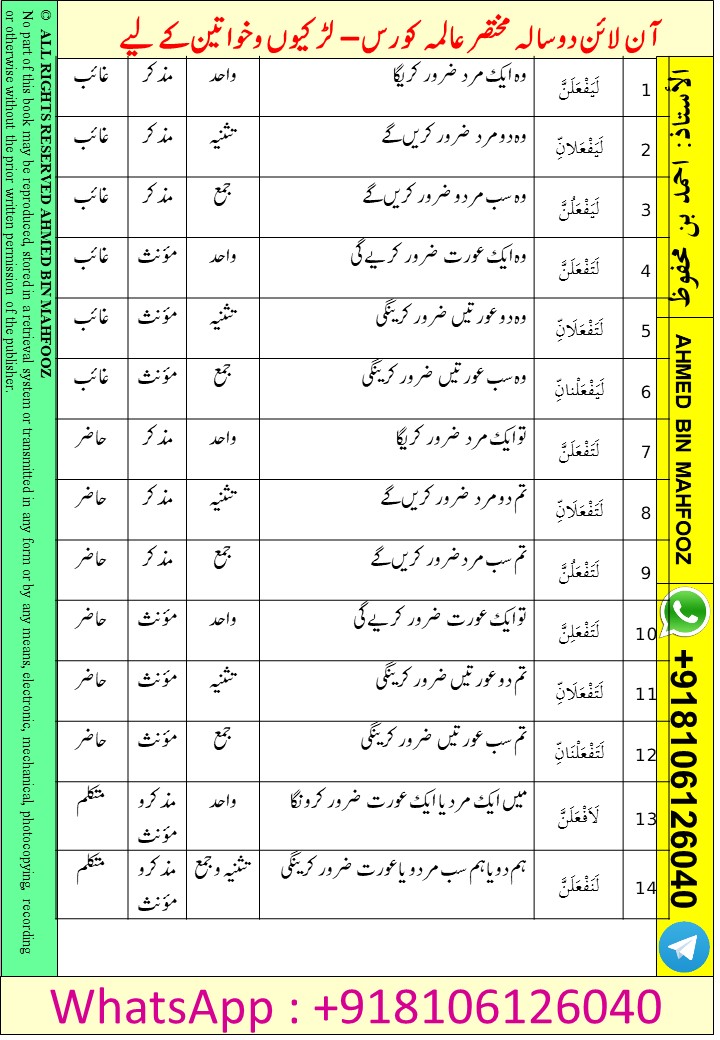 آن لائن دو سالہ مختصر عالمہ کورس – لڑکیوں و خواتین کے لیے
1 لَيَفْعَلَنَّ وہ ایک مرد ضرور کریگا واحد مذکر غائب
2 لَيَفْعَلَانِّ وہ دو مرد ضرور کریں گے تثنیہ مذکر غائب
3 لَيَفْعَلُنَّ وہ سب مردو ضرور کریں گے جمع مذکر غائب
4 لَتَفْعَلَنَّ وہ ایک عورت ضرور کریے گی واحد مؤنث غائب
5 لَتَفْعَلَانِّ وہ دو عورتیں ضرور کرینگی تثنیہ مؤنث غائب
6 لَيَفْعَلْنانِّ وہ سب عورتیں ضرور کرینگی جمع مؤنث غائب
7 لَتَفْعَلَنَّ تو ایک مرد ضرور کریگا واحد مذکر حاضر
8 لَتَفْعَلَانِّ تم دو مرد ضرور کریں گے تثنیہ مذکر حاضر
9 لَتَفْعَلُنَّ تم سب مرد ضرور کریں گے جمع مذکر حاضر
10 لَتَفْعَلِنَّ تو ایک عورت ضرور کریے گی واحد مؤنث حاضر
11 لَتَفْعَلَانِّ تم دو عورتیں ضرور کرینگی تثنیہ مؤنث حاضر
12 لَتَفْعَلْنَانِّ تم سب عورتیں ضرور کرینگی جمع مؤنث حاضر
13 لَاَفْعَلَنَّ میں ایک مرد یا ایک عورت ضرور کرونگا واحد مذکر و متکلم
مؤنث
14 لَنَفْعَلَنَّ ہم دو یا ہم سب مردو یا عورت ضرور کرینگی تثنیہ و جمع مذکر و متکلم
مؤنث
الأستاذ: احمد بن محفوظ
AHMED BIN MAHFOOZ
+918106126040
© ALL RIGHTS RESERVED AHMED BIN MAHFOOZ
No part of this book may be reproduced, stored in a retrieval system or transmitted in any form or by any means, electronic, mechanical, photocopying, recording
or otherwise without the prior written permission of the publisher.
WhatsApp : +918106126040